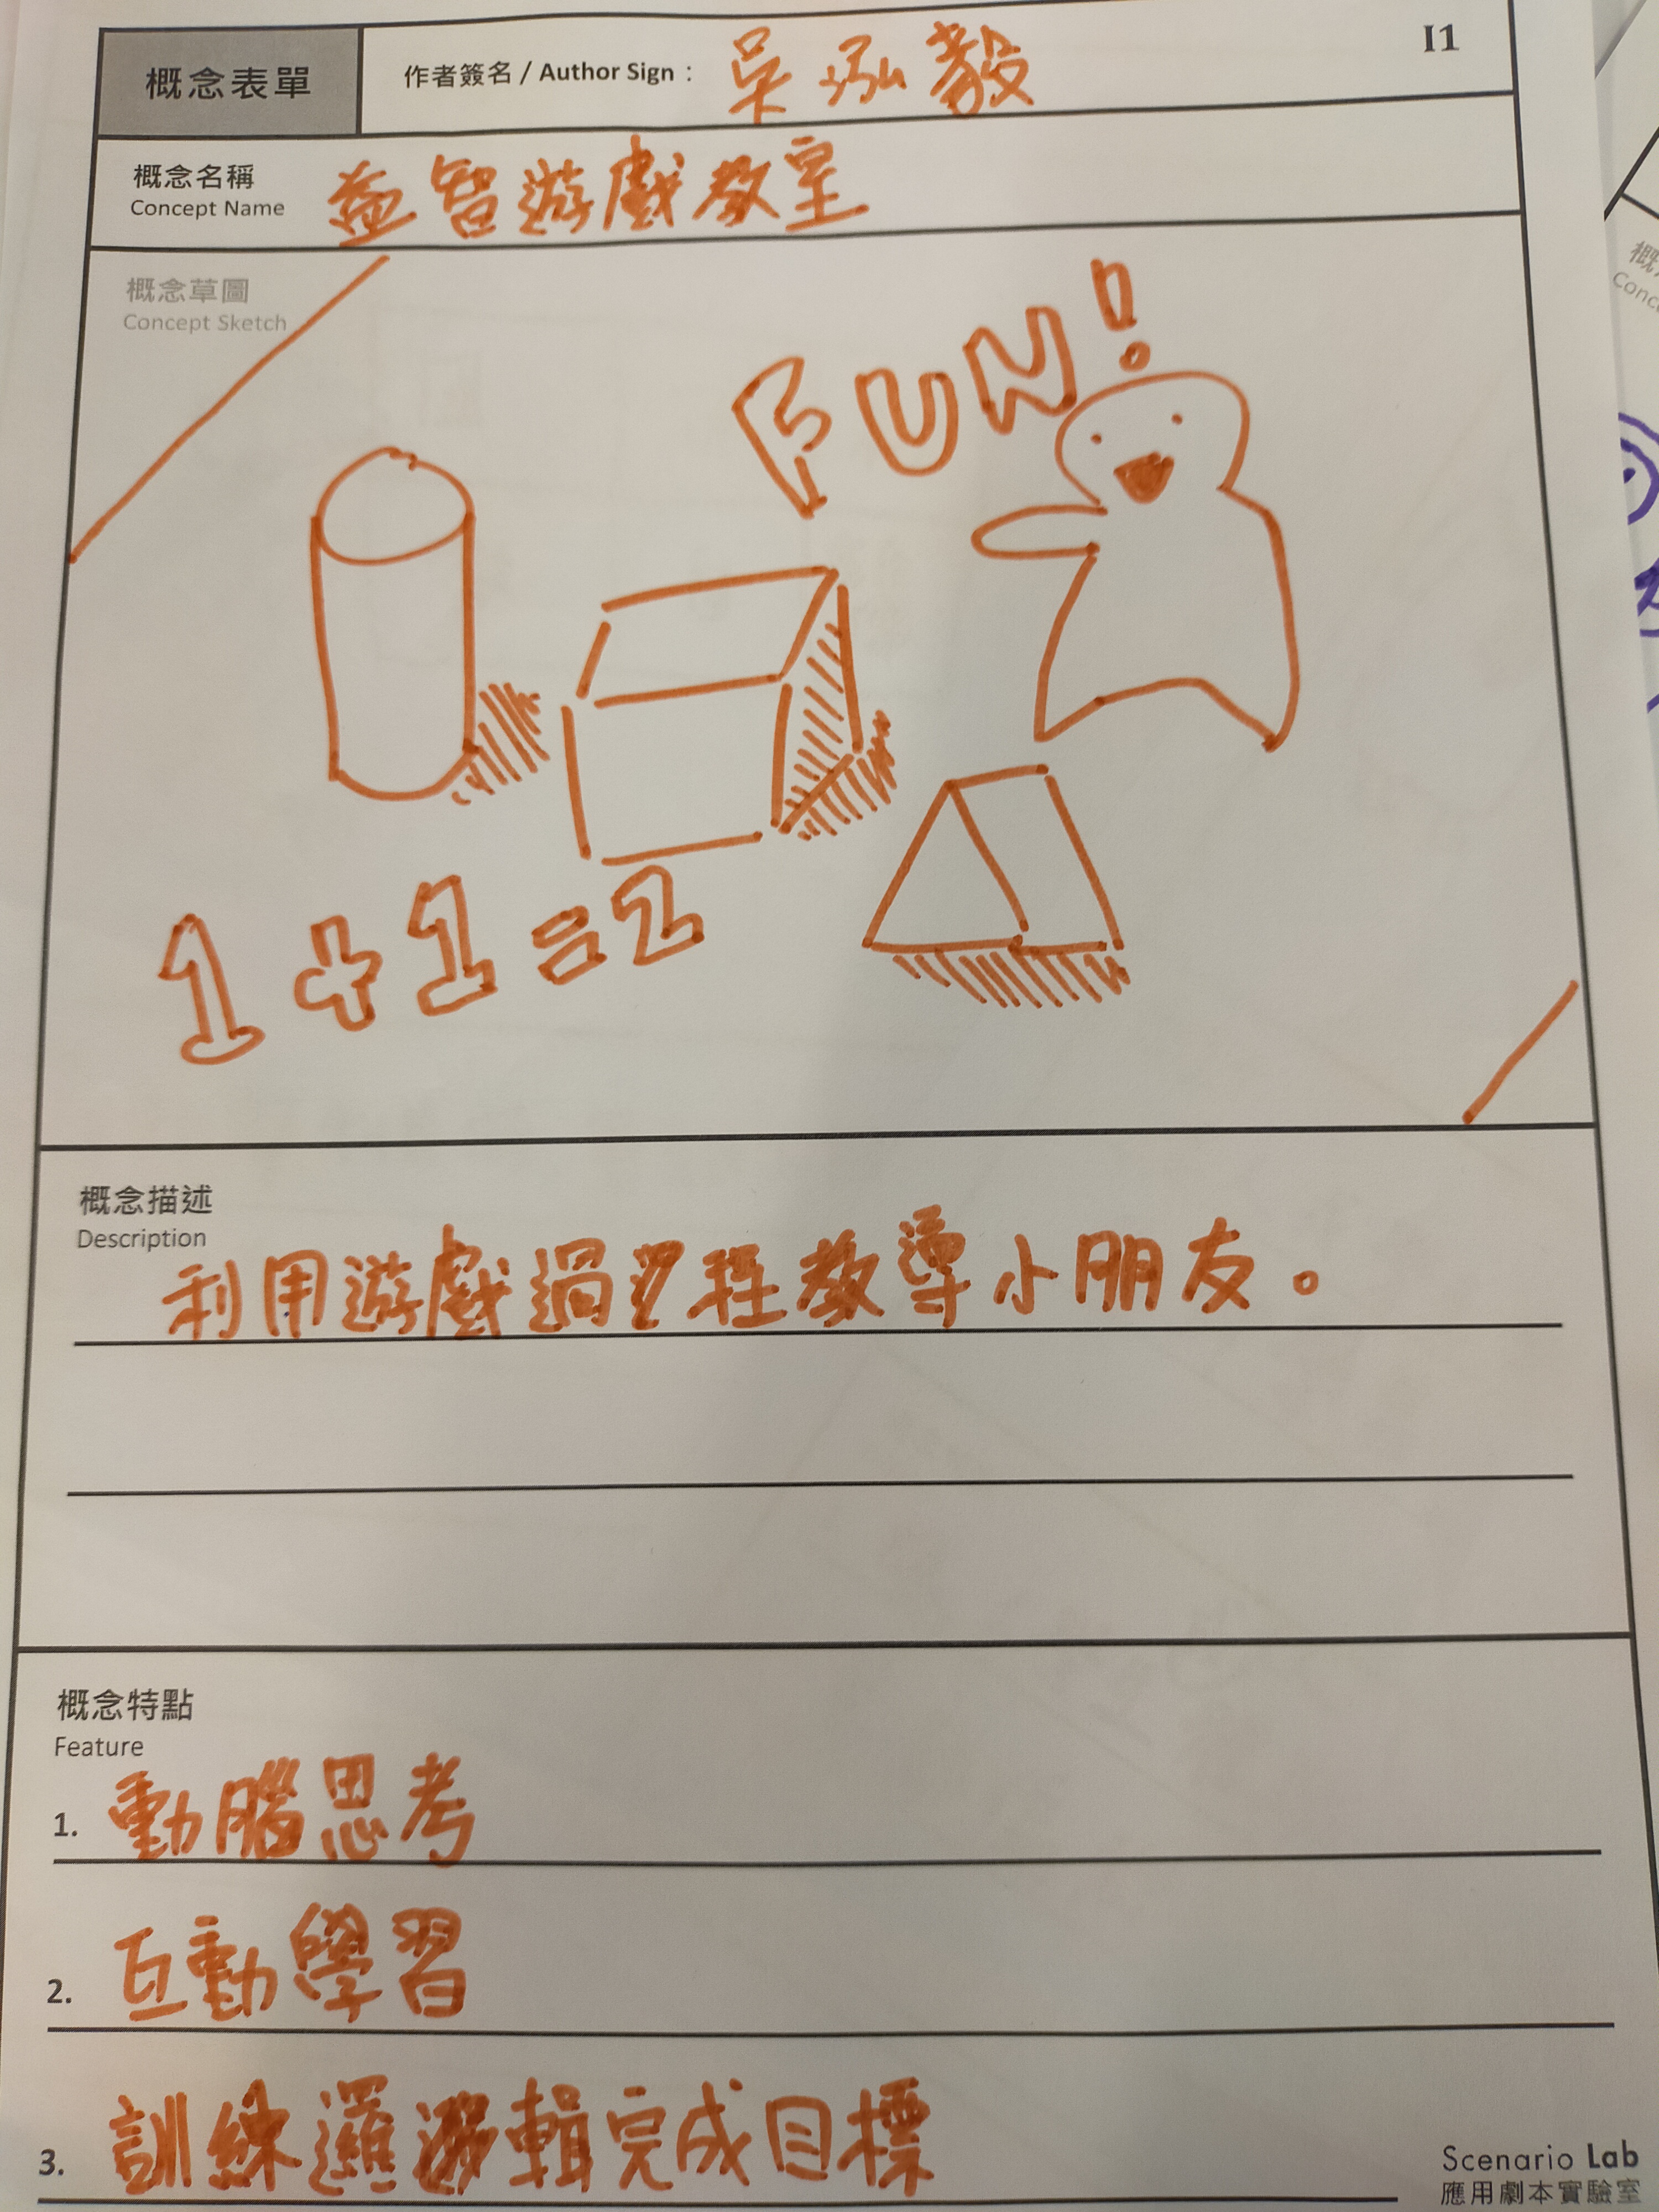 概念表單
作者簽名 / Author Sign： 吳泓毅
I1
概念名稱
Concept Name
益智遊戲教室
概念草圖
Concept Sketch
FUN!
1+1=2
概念描述
Description
利用遊戲過程教導小朋友。
概念特點
Feature
1. 動腦思考
2. 互動學習
3. 訓練邏輯完成目標
Scenario Lab
應用劇本實驗室